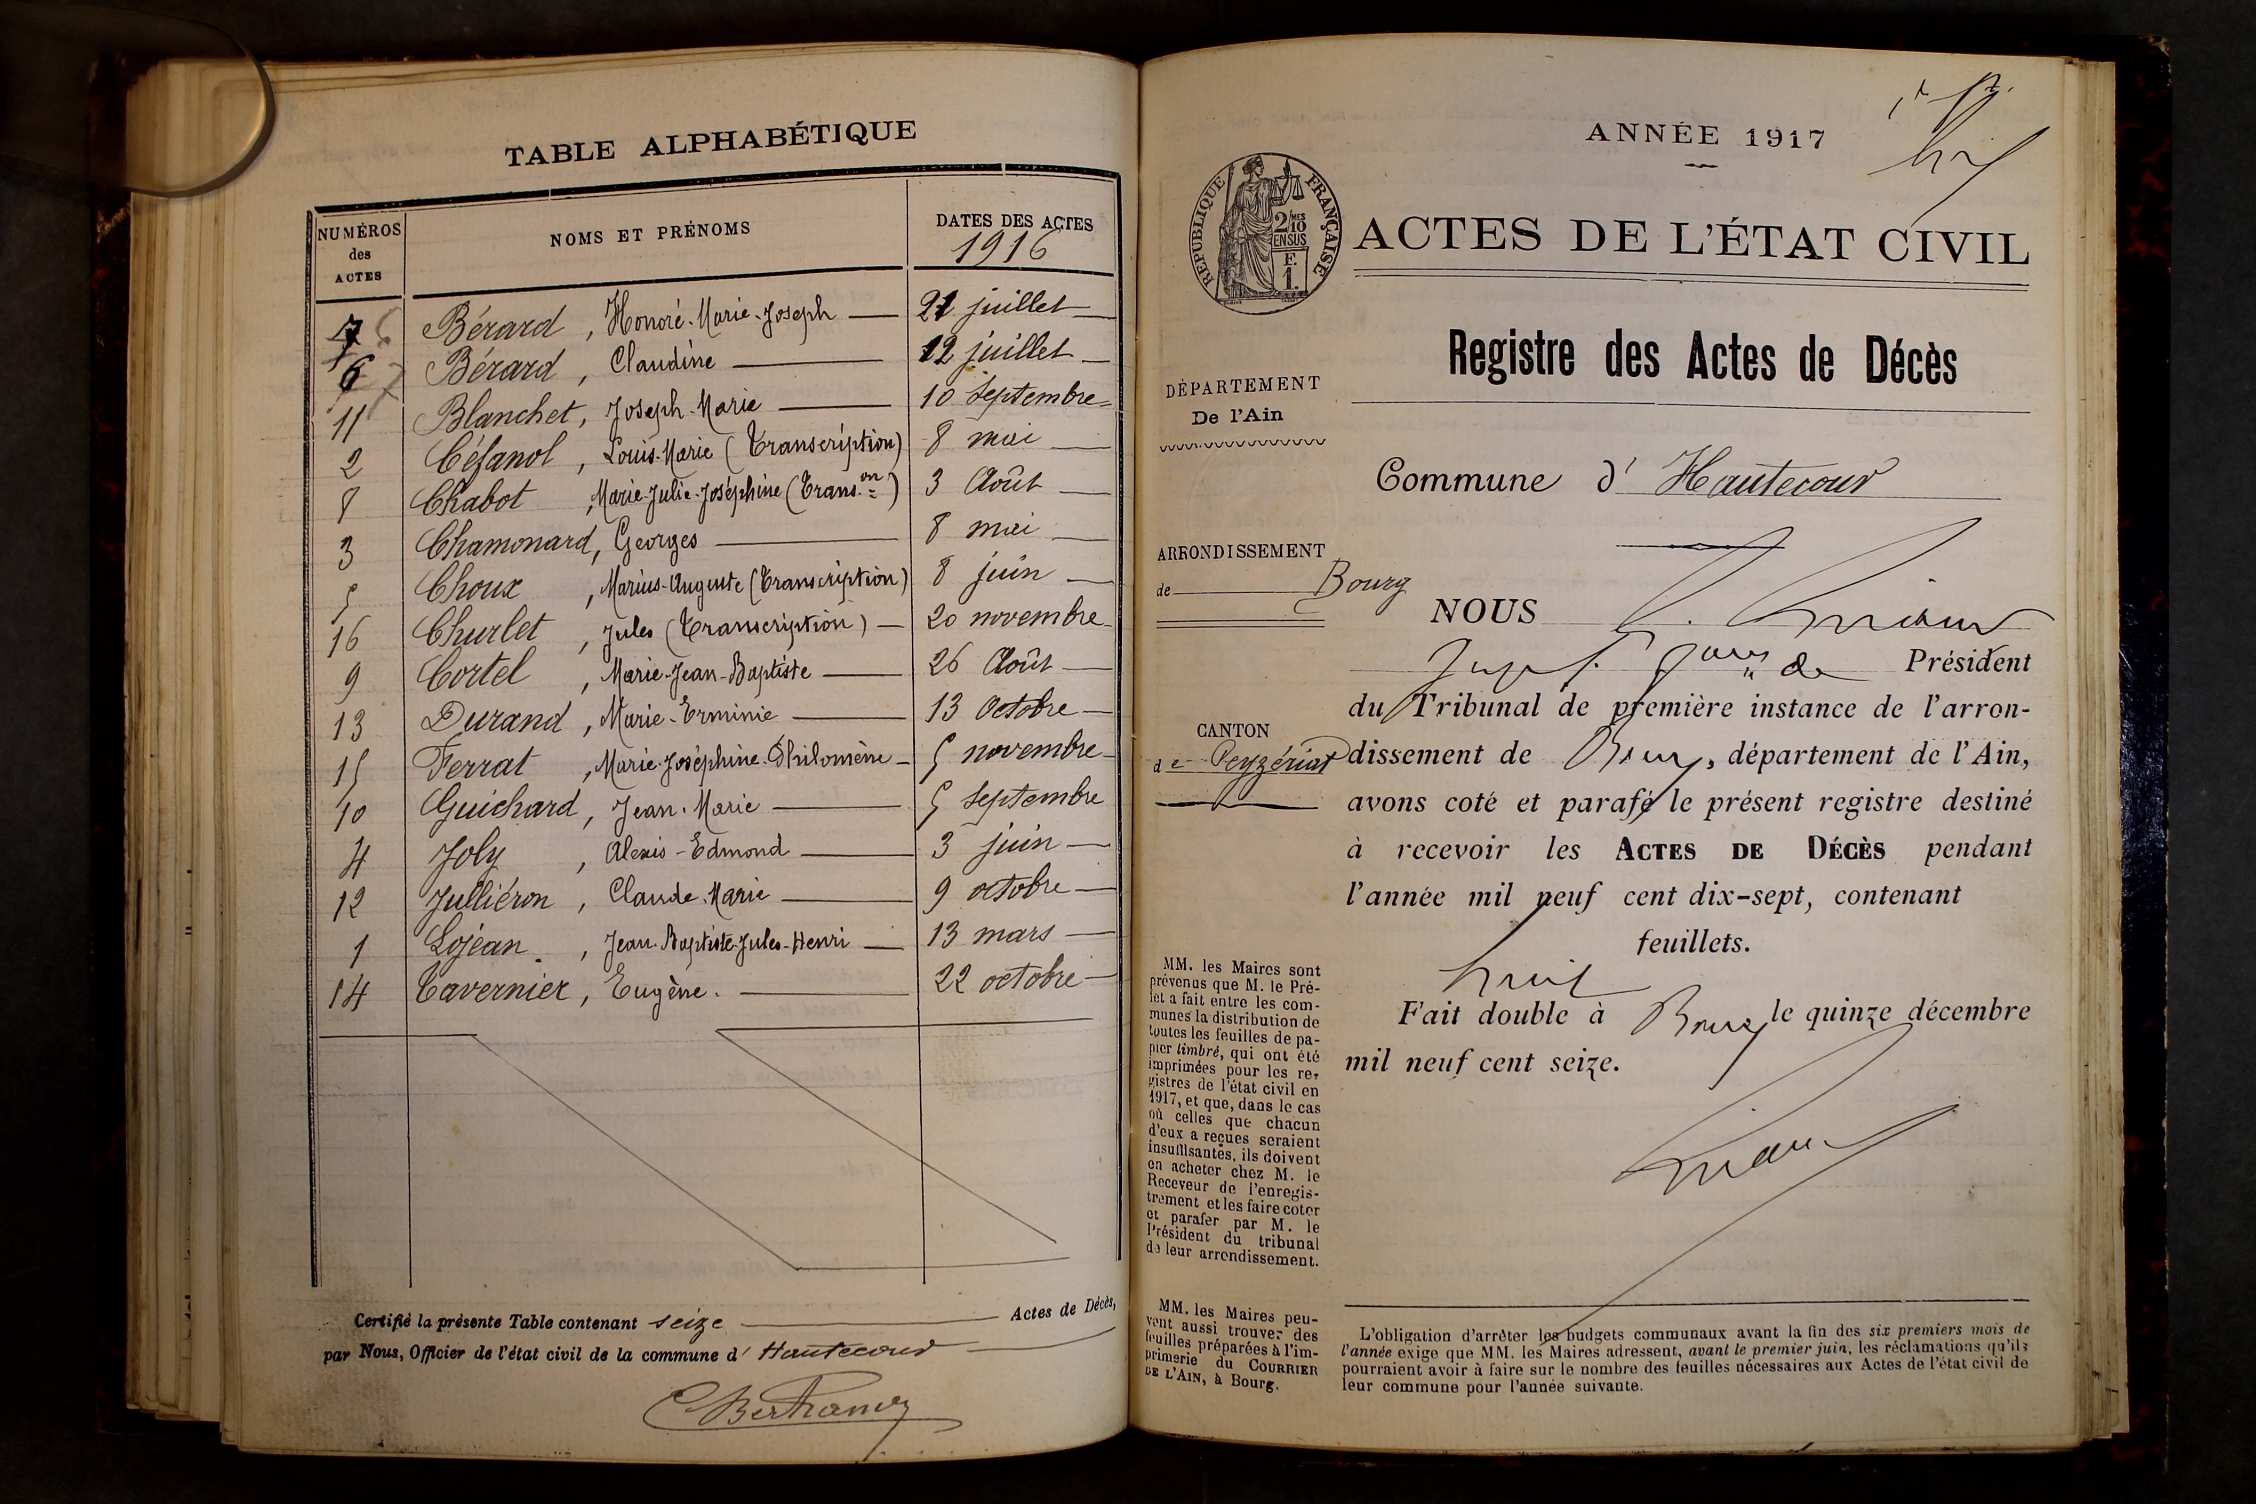 TABLE ALPHABÉTIQUE
NUMÉROS des ACTES
NOMS ET PRÉNOMS
DATES DES ACTES
1916
7 Bérard, Honoré-Marie-Joseph 21 juillet
6 Bérard, Claudine 12 juillet
11 Blanchet, Joseph-Marie 10 Septembre
2 Céfanol, Louis-Marie (Transcription) 8 mai
8 Chabot, Marie-Julie-Joséphine (Trans.on) 3 Août
3 Chamonard, Georges 8 mai
5 Choux, Marius-Auguste (Transcription) 8 juin
16 Churlet, Jules (Transcription) 20 novembre
9 Cortel, Marie-Jean-Baptiste 26 Août
13 Durand, Marie-Erminie 13 Octobre
15 Ferrat, Marie-Joséphine-Philomène 5 novembre
10 Guichard, Jean-Marie 5 Septembre
4 Joly, Alexis-Edmond 3 juin
12 Julliéron, Claude-Marie 9 octobre
1 Lojean, Jean-Baptiste-Jules-Henri 13 mars
14 Tavernier, Eugène. 22 octobre
Certifié la présente Table contenant seize Actes de Décès,
par Nous, Officier de l'état civil de la commune d'Hautecour
ANNÉE 1917
RÉPUBLIQUE FRANÇAISE
2/10 MES
EN SUS
F.
1.
ACTES DE L'ÉTAT CIVIL
Registre des Actes de Décès
DÉPARTEMENT
De l'Ain
Commune d'Hautecour
ARRONDISSEMENT
de Bourg
NOUS
Président
du Tribunal de première instance de l'arron-
CANTON
de Ceyzériat
dissement de Bourg, département de l'Ain,
avons coté et parafé le présent registre destiné
à recevoir les ACTES DE DÉCÈS pendant
l'année mil neuf cent dix-sept, contenant
huit feuillets.
Fait double à Bourg le quinze décembre
mil neuf cent seize.
MM. les Maires sont
prévenus que M. le Pré-
fet a fait entre les com-
munes la distribution de
toutes les feuilles de pa-
pier timbré, qui ont été
imprimées pour les re-
gistres de l'état civil en
1917, et que, dans le cas
où celles que chacun
d'eux a reçues seraient
insuffisantes, ils doivent
en acheter chez M. le
Receveur de l'enregis-
trement et les faire coter
et parafer par M. le
Président du tribunal
de leur arrondissement.
MM. les Maires peu-
vent aussi trouver des
feuilles préparées à l'im-
primerie du COURRIER
DE L'AIN, à Bourg.
L'obligation d'arrêter les budgets communaux avant la fin des six premiers mois de
l'année exige que MM. les Maires adressent, avant le premier juin, les réclamations qu'ils
pourraient avoir à faire sur le nombre des feuilles nécessaires aux Actes de l'état civil de
leur commune pour l'année suivante.